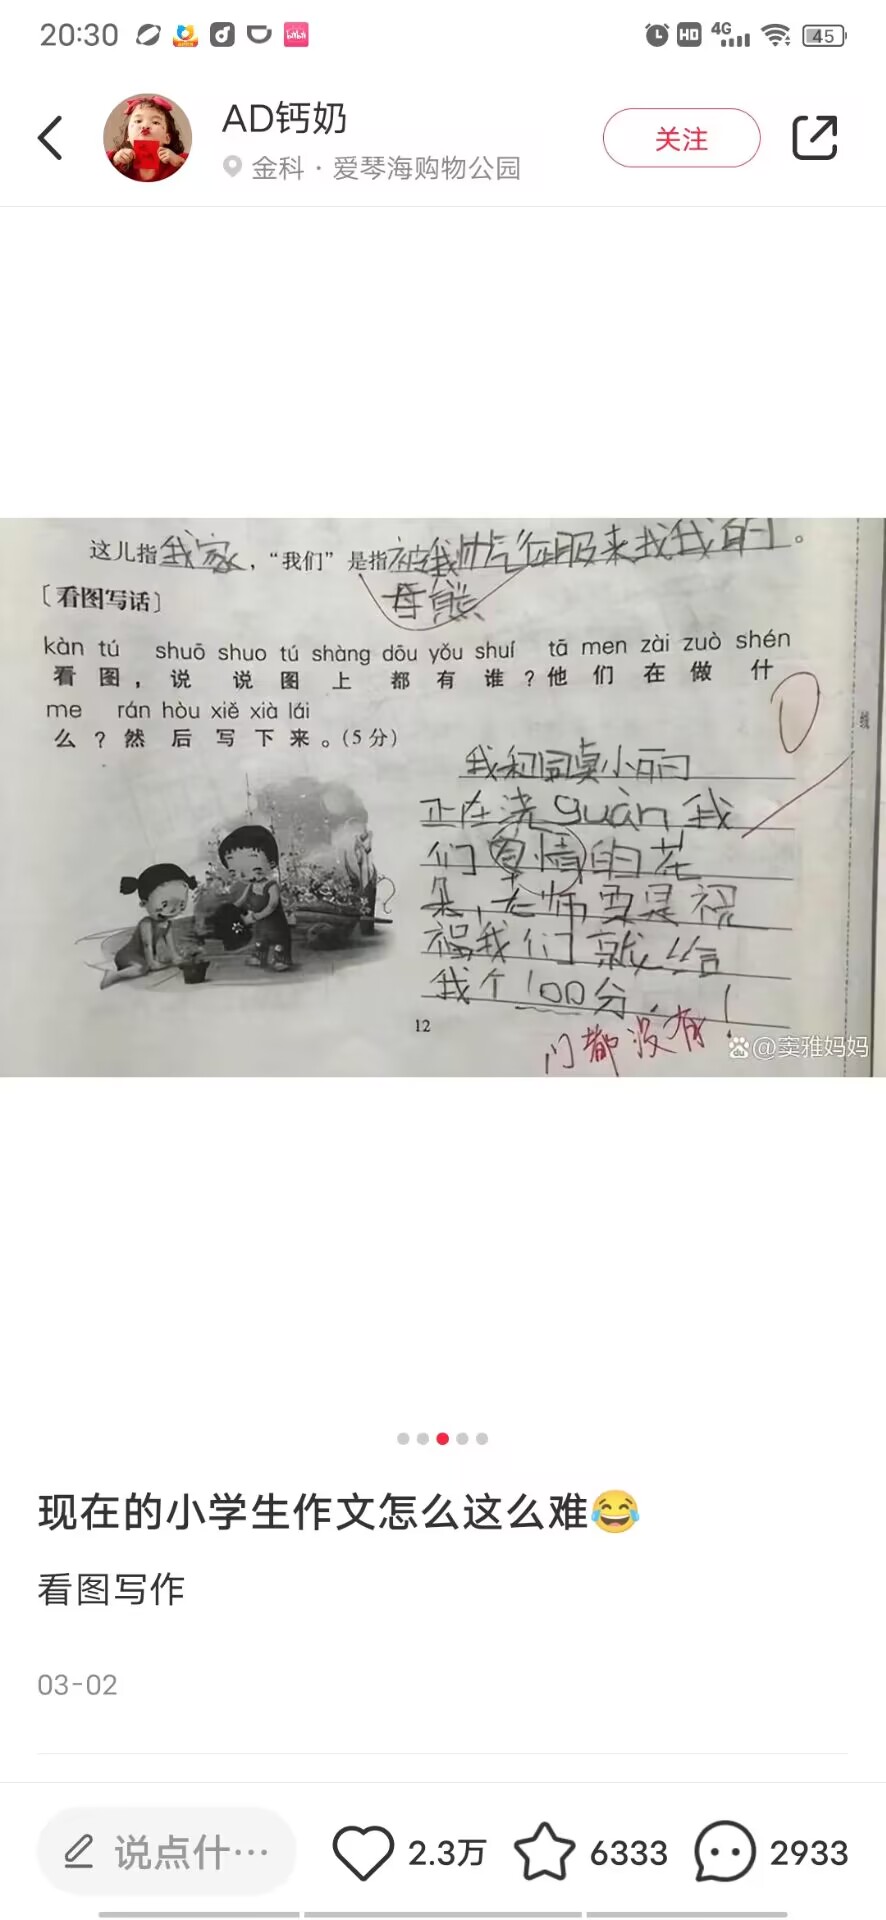 20:30
HD 4G 45
AD钙奶
金科·爱琴海购物公园
关注
这儿指我家，“我们”是指被我帅气征服来找我的。
母熊
〔看图写话〕
kàn tú shuō shuo tú shàng dōu yǒu shuí tā men zài zuò shén
看图，说说图上都有谁？他们在做什
me rán hòu xiě xià lái
么？然后写下来。(5分)
线
我和同桌小丽
正在浇guàn我
们爱情的花
朵，老师要是祝
福我们就给
我个100分。
门都没有！
12
@窦雅妈妈
现在的小学生作文怎么这么难😂
看图写作
03-02
说点什…
2.3万
6333
2933